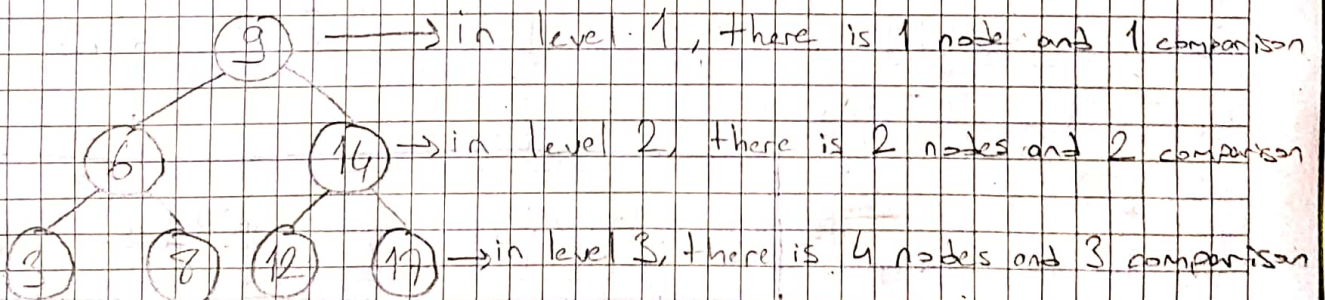 9 → in level 1, there is 1 node and 1 comparison
6 14 → in level 2, there is 2 nodes and 2 comparison
3 8 12 17 → in level 3, there is 4 nodes and 3 comparison